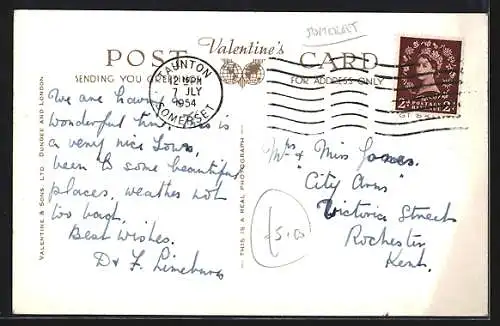 SOMERSET
POST Valentine's CARD
SENDING YOU GREETINGS FOR ADDRESS ONLY
TAUNTON
12 15 PM
7 JLY
1954
SOMERSET
2D POSTAGE REVENUE 2D
VALENTINE & SONS LTD. DUNDEE AND LONDON
THIS IS A REAL PHOTOGRAPH
We are having
wonderful time. This is
a very nice Town,
been to some beautiful
places, weather not
too bad.
Best Wishes.
D & F
Mrs & Miss Jones.
City Arms
Victoria Street
Rochester
Kent.
£5.00